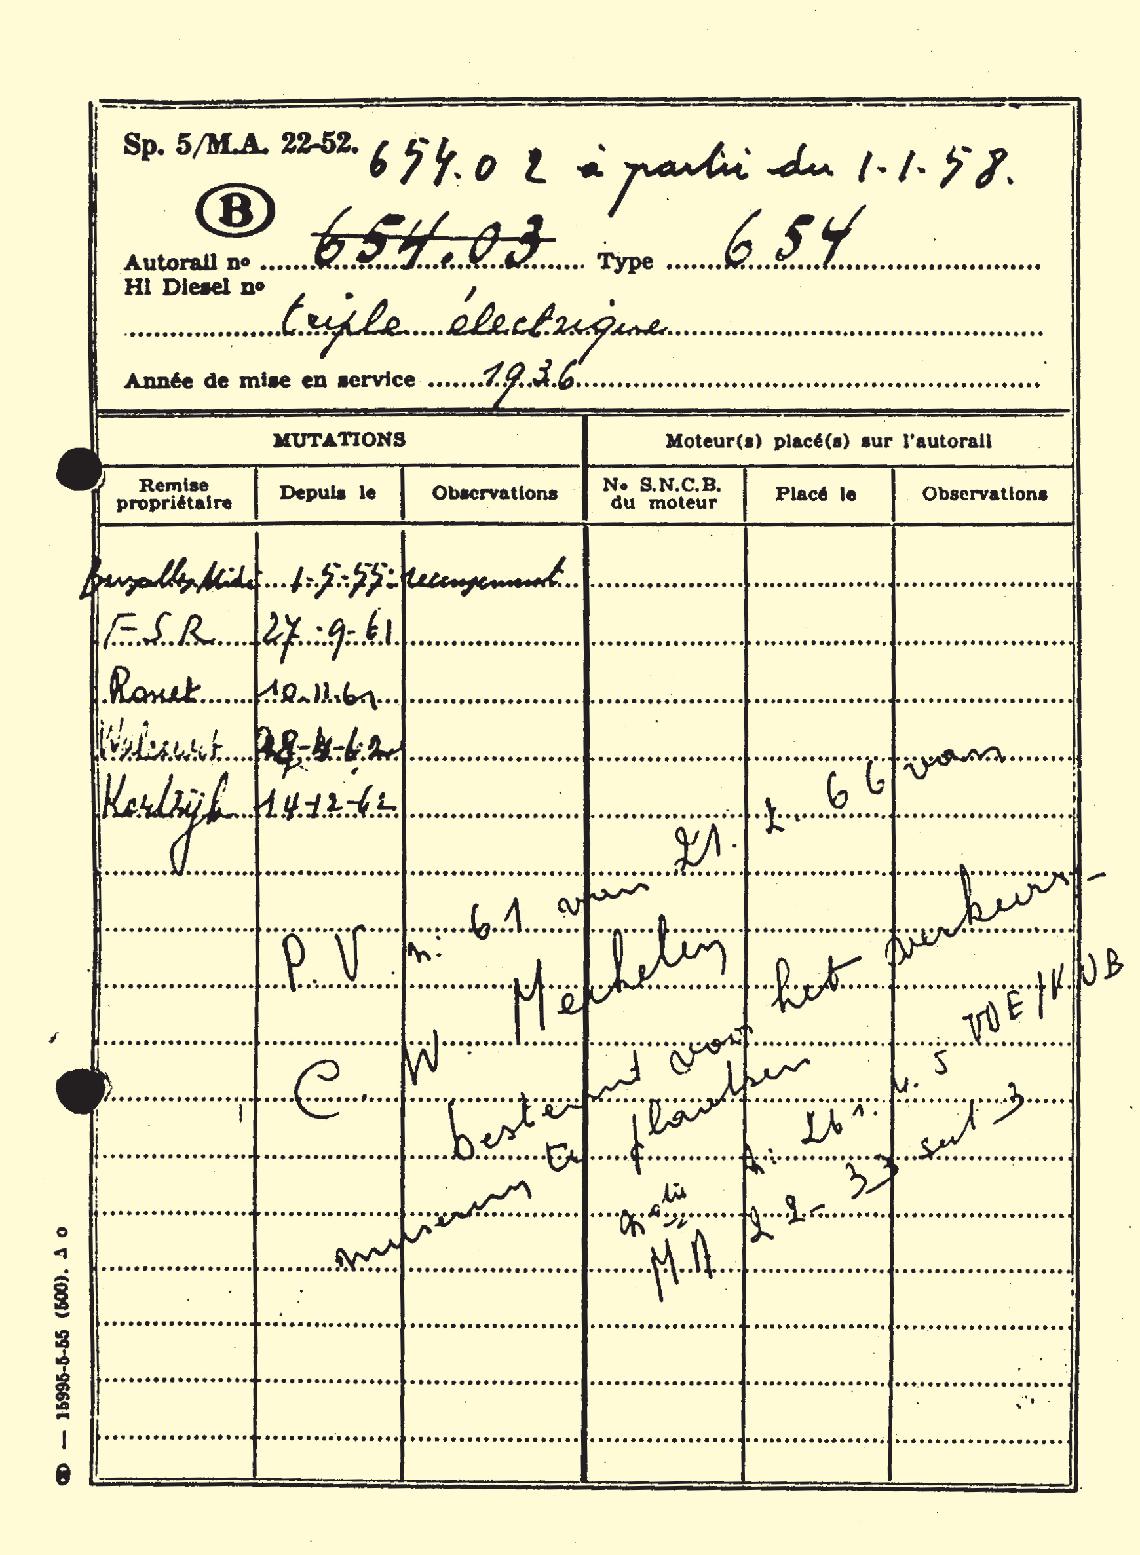 Sp. 5/M.A. 22-52. 654.02 à partir du 1.1.58.
B
Autorail nº 654.03 Type 654
Hl Diesel nº
triple électrique
Année de mise en service 1936
MUTATIONS Moteur(s) placé(s) sur l'autorail
Remise propriétaire Depuis le Observations Nº S.N.C.B. du moteur Placé le Observations
Bruxelles Midi 1-5-55 recensement
F.S.R. 27-9-61
Ronet 10.11.61
Walcourt 28-4-62
Kortrijk 14-12-62
P.V. n: 61 van 21. 2. 66 van
C.W. Mechelen
bestemd voor het verkeers-
museum te
n: 261. v. 5
MA 22-33
15995-5-55 (500).